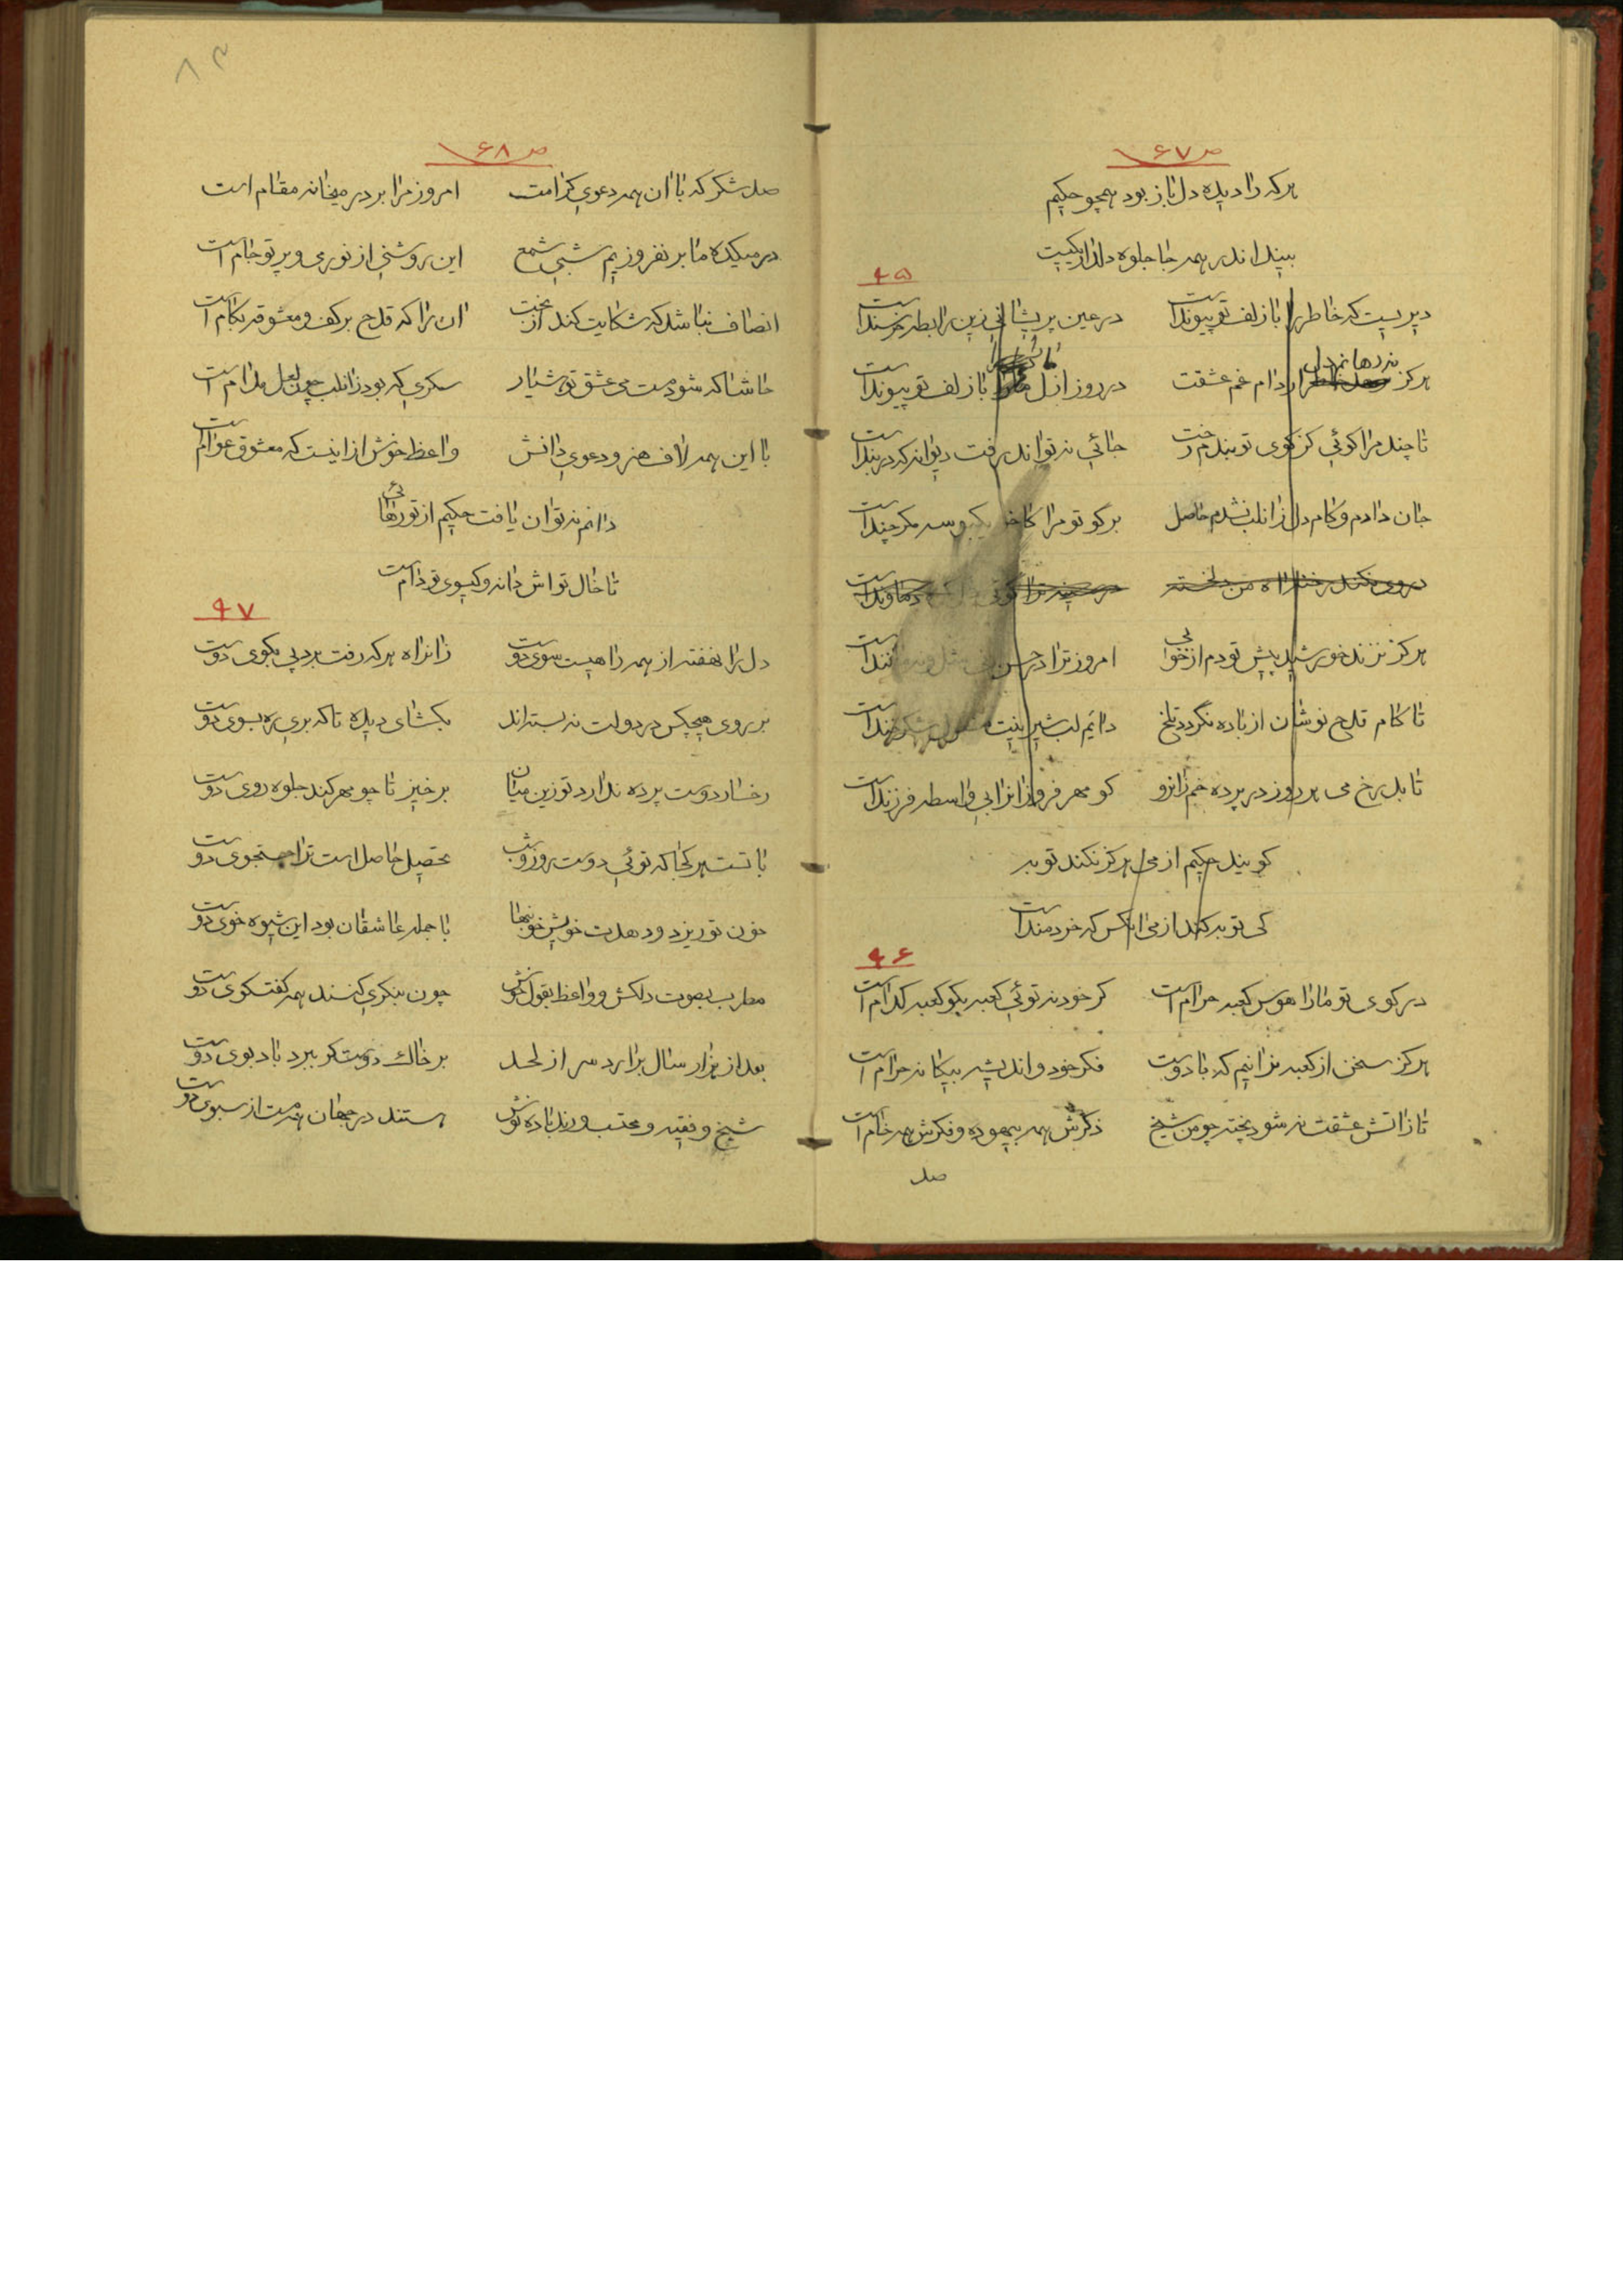 ص ۶۷
هرکه را دیده دل باز بود همچو حکیم
بیند اندر همه جا جلوه دلدار یکیست
۴۵
دیریست که خاطر را با زلف تو پیوند است در عین پریشانی زین رابطه خرسند است
نه رهانم دل
هرگز از دام غم عشقت در روز ازل ما را با زلف تو پیوند است
تا چند مرا گوئی کز کوی تو بندم رخت جائی نه تواند رفت دیوانه که در بند است
جان دادم و کام دل زانلب نشدم حاصل برگو تو مرا کاخر یکبوسه مگر چند است
هرگز نزند خورشید پیش تو دم از خوبی امروز ترا در حسن مانند است
تا کام قدح نوشان از باده نگردد تلخ دائم لب شیرینت شکرخند است
تا بدرخ می هر روز در پرده خم زانرو کو مهر فروزانرا بی واسطه فرزند است
گویند حکیم از می هرگز نکند توبه
کی توبه کند از می انکس که خردمند است
۴۶
در کوی تو ما را هوس کعبه حرام است گر خود نه توئی کعبه بگو کعبه کدام است
هرگز سخن از کعبه نرانیم که با دوست فکر خود و اندیشه بیگانه حرام است
تا زاتش عشقت نه شود پخته چو من شیخ ذکرش همه بیهوده و فکرش همه خام است
صد
۸۳
ص ۶۸
صد شکر که با ان همه دعوی کرامت امروز مرا بر در میخانه مقام است
در میکده ما بر نفروزیم شبی شمع این روشنی از نوری و پرتو جام است
انصاف نباشد که شکایت کند از بخت ان را که قدح بر کف و معشوقه بکام است
حاشا که شود مست می عشق تو هشیار سکری که بود زانلب چون لعل مدام است
با این همه لاف هنر و دعوی دانش واعظ خوش از اینست که معشوق عوام است
دانم نه توان یافت حکیم از تو رهائی
تا خال تو اش دانه و گیسوی تو دام است
۴۷
دل را نهفته از همه راهیست سوی دوست زانراه هرکه رفت برد پی بکوی دوست
بر روی هیچکس در دولت نه بسته اند بگشای دیده تا که بری ره بسوی دوست
رخسار دوست پرده ندارد تو زین میان برخیز تا چو مهر کند جلوه روی دوست
با تست هر کجا که توئی دوست روز و شب تحصیل حاصل است ترا جستجوی دوست
خون تو ریزد و دهدت خویش خونبها با جمله عاشقان بود این شیوه خوی دوست
مطرب بصوت دلکش و واعظ بقول خوش چون بنگری کنند همه گفتگوی دوست
بعد از هزار سال برارد سر از لحد بر خاک دوست گر ببرد باد بوی دوست
شیخ و فقیه و محتسب و رند باده نوش هستند در جهان همه مست از سبوی دوست